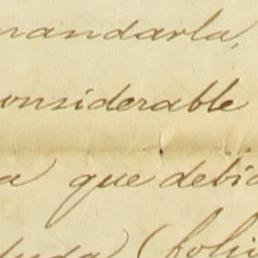 mandarla,
onsiderable
a que debi
luda) (foli